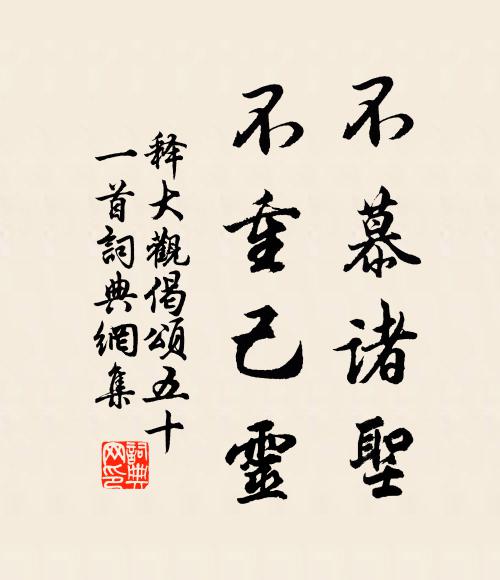 不慕諸聖
不重己靈
释大觀偈頌五十
一首詞典網集
詞典
网印